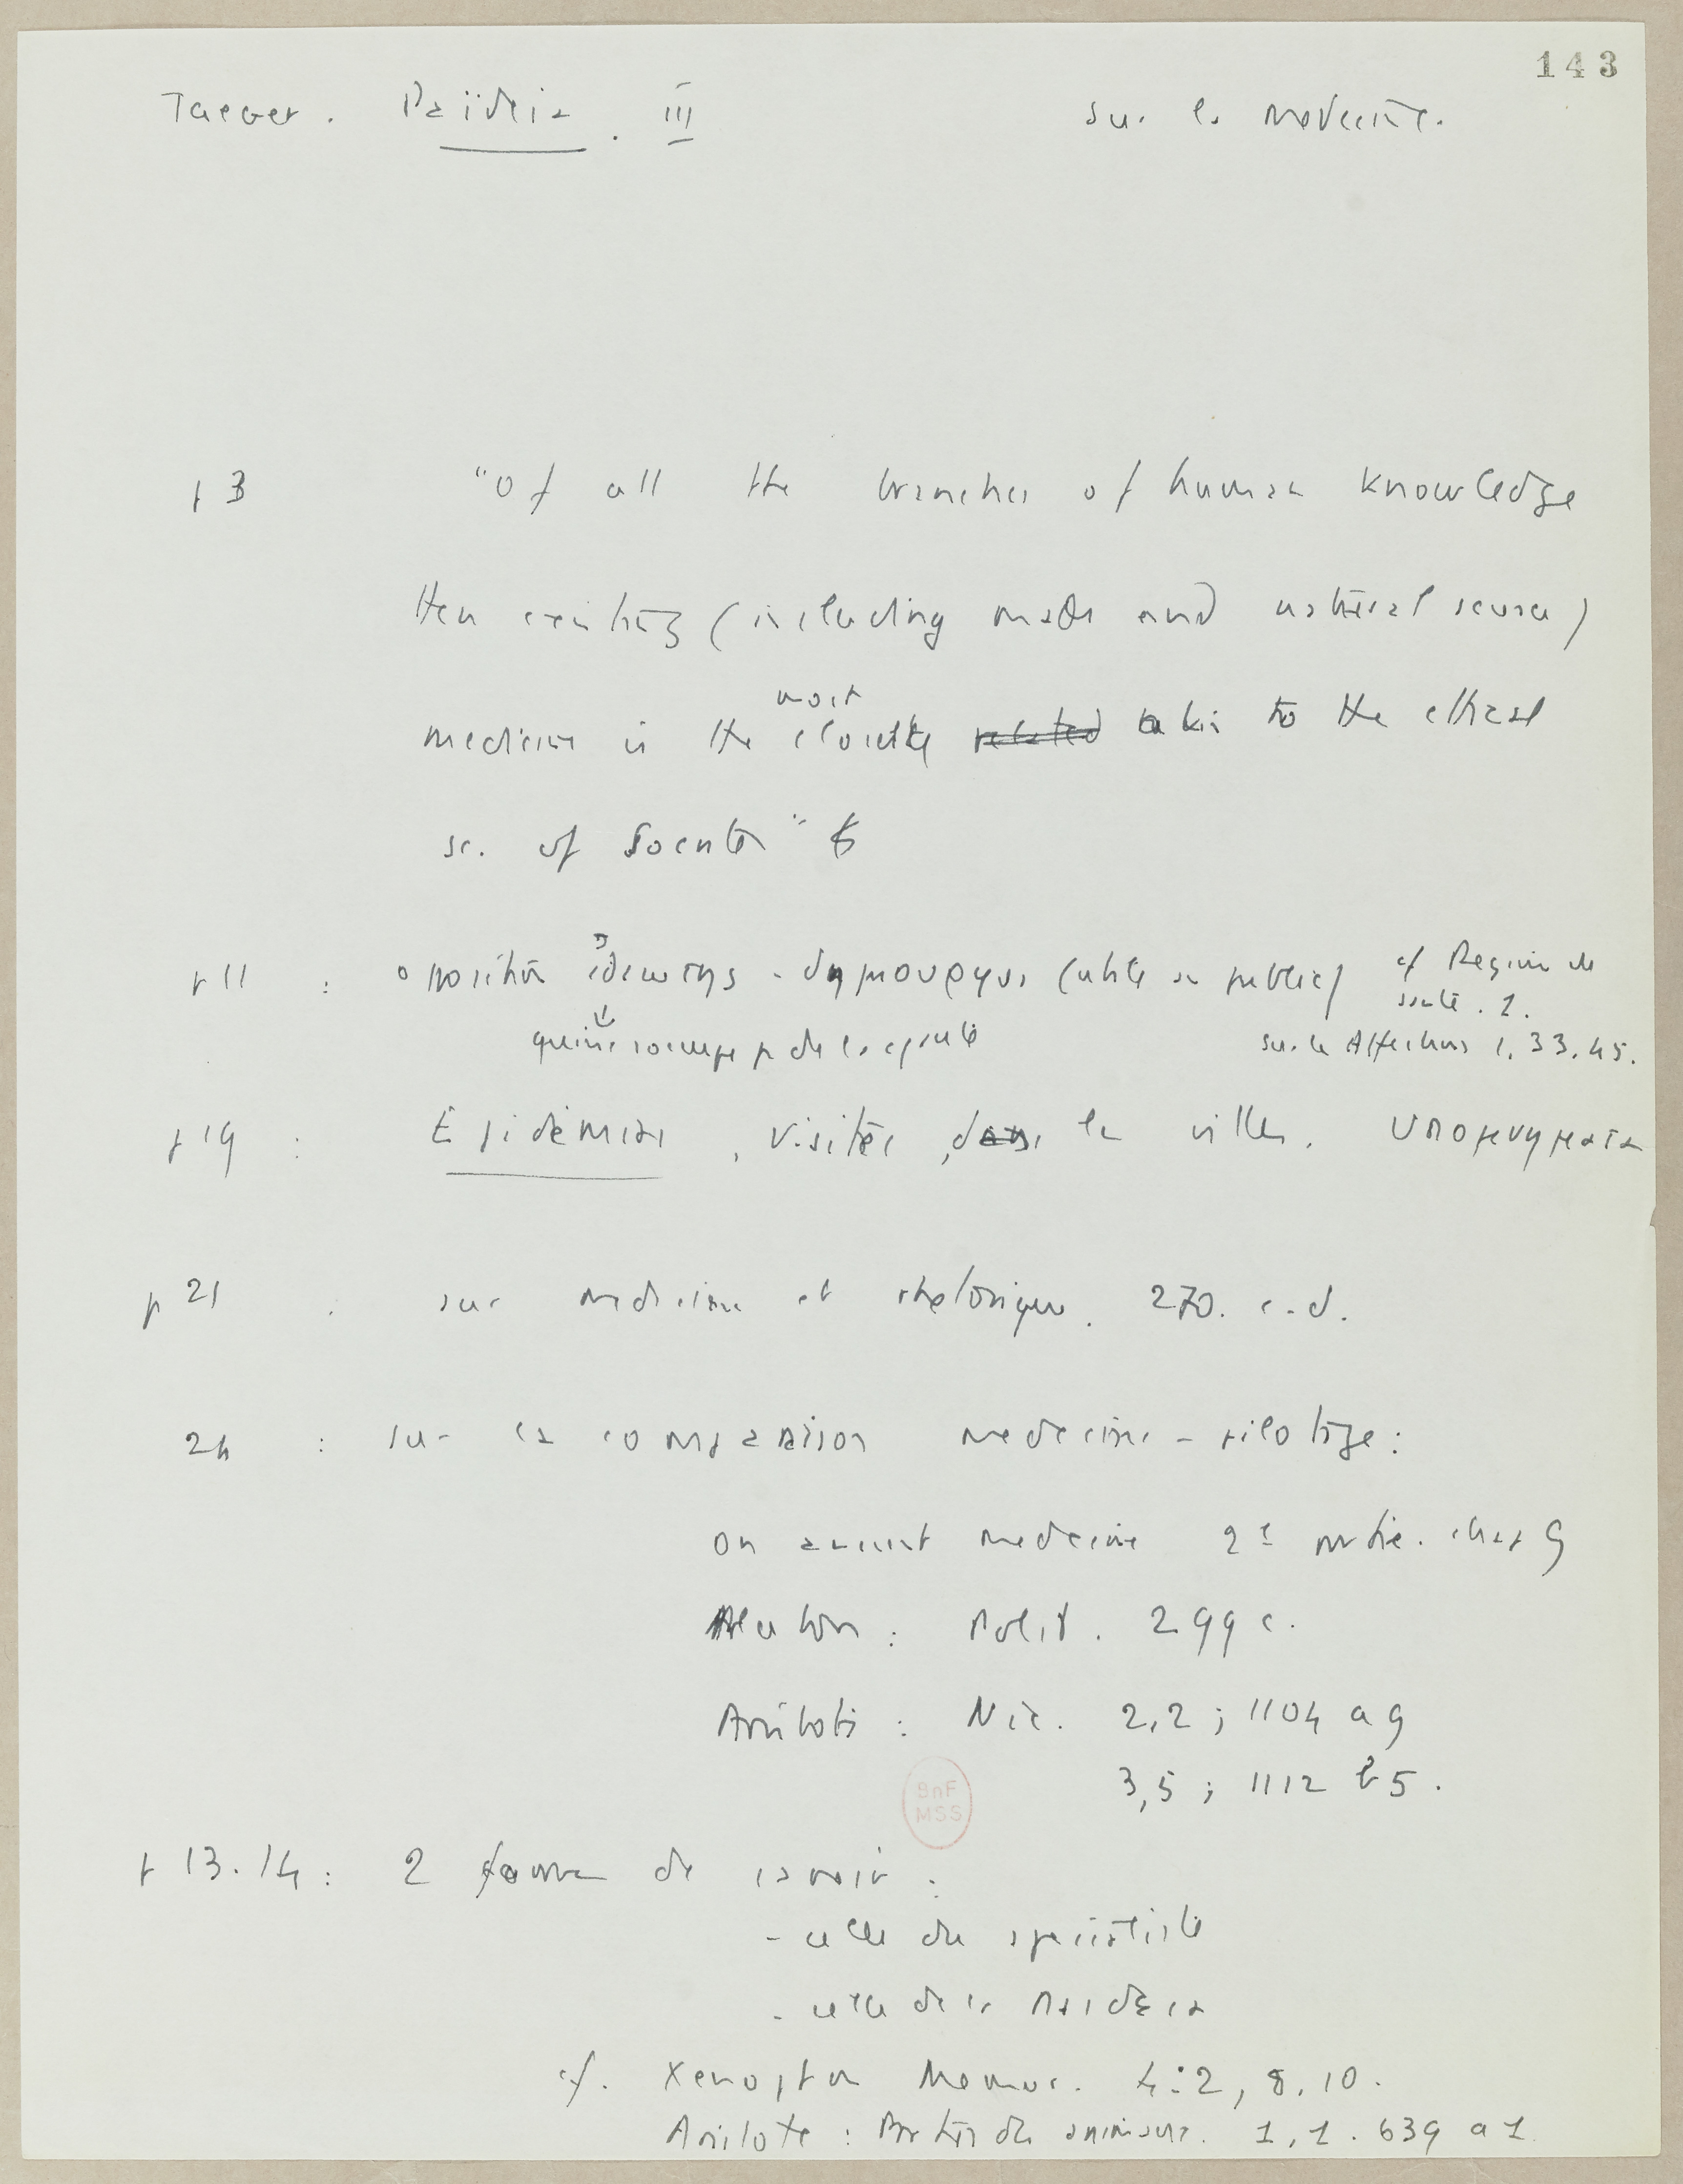 143
Jaeger. Païdeia. III sur la médecine.
p 3 "Of all the branches of human knowledge
then existing (including math and natural science)
medicine is the most closely related akin to the ethical
sc. of Socrates"
p 11 : opposition ἰδιωτης - δημιουργος (utile au public) cf Régime de
santé. 1.
qui ne s'occupe p de la santé sur les Affections 1. 33. 45.
p 19 : Epidémies, visites, dans les villes. υπομνηματα
p 21 . sur médecine et rhétorique. 270. c-d.
24 : sur la comparaison médecine - pilotage :
médecine 2e partie. chez G
Platon : Polit. 299 c.
Aristote : Nic. 2,2 ; 1104 a 9
3,5 ; 1112 b 5.
BnF
MSS
p 13.14 : 2 formes de savoir :
- celle du spécialiste
- celle de la Paideia
cf. Xenophon Memor. 4:2, 8.10.
Aristote : Parties des animaux. 1,1. 639 a 1